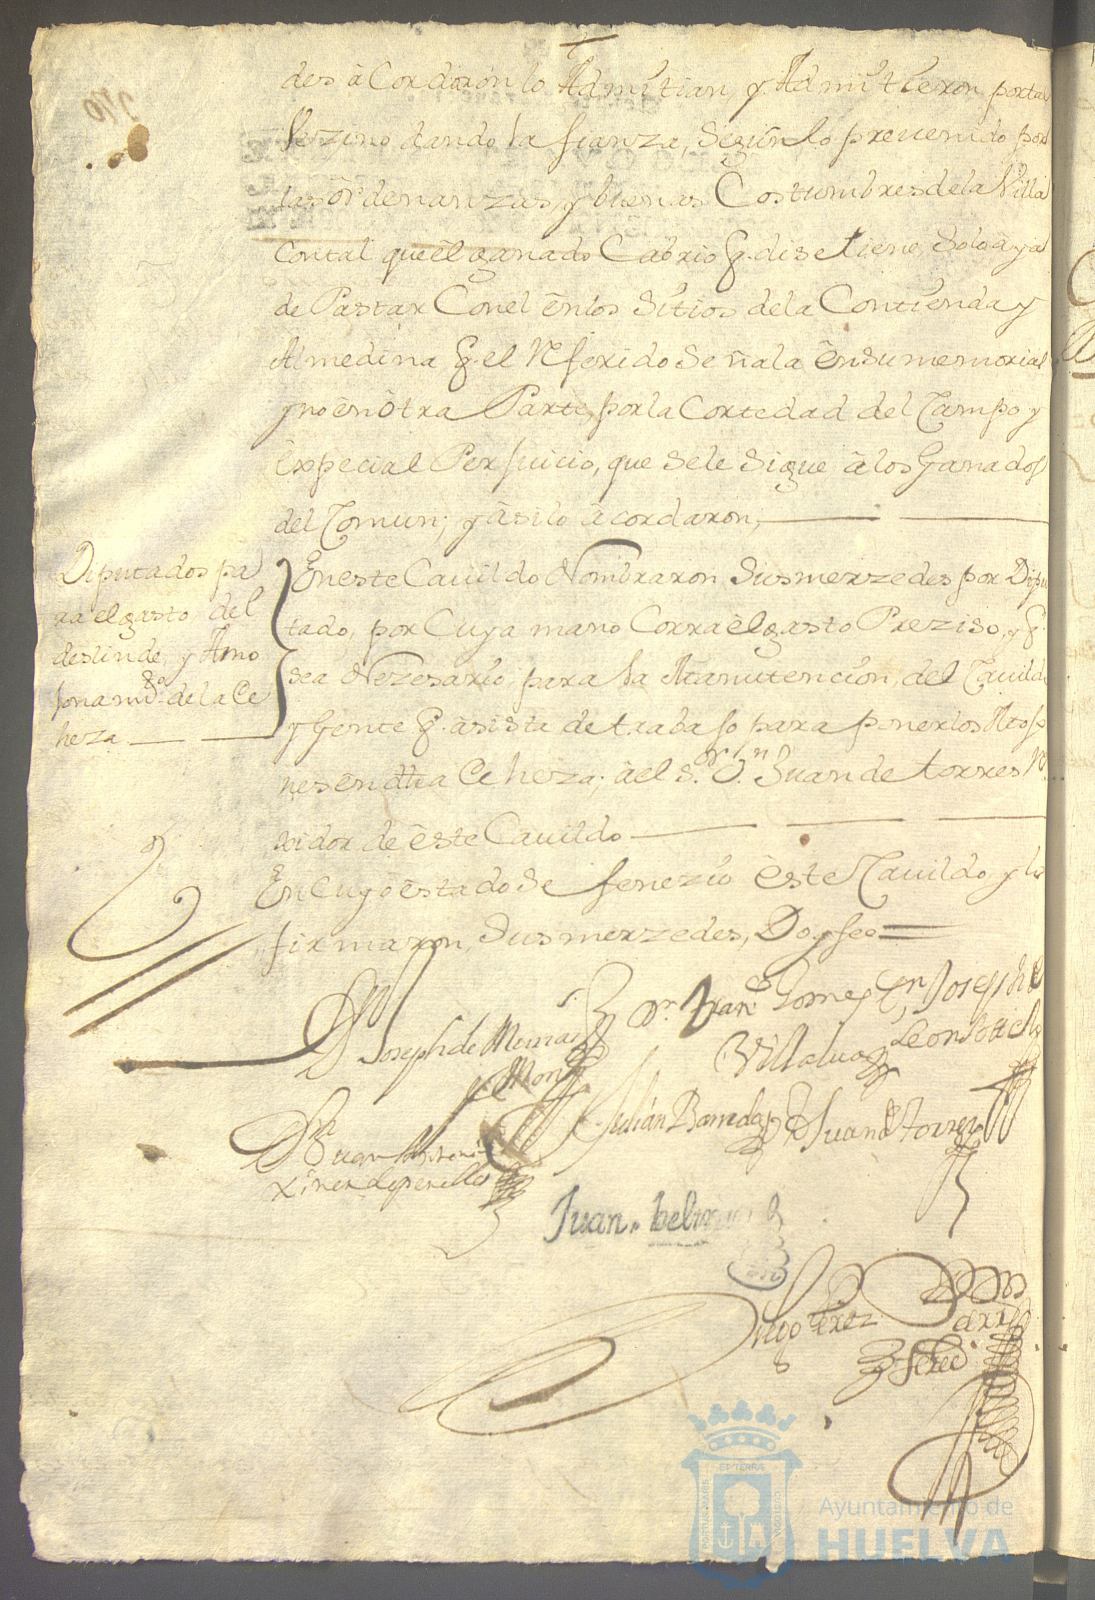 des âCordarón lo Admitian, y Admitieron por tal
Vezino dando la fianza, Según lo preuenido por
las ôrdenanzas, y buenas Costumbres de la Villa
Contal que êl ganado Cabrio q. dise tiene, Solo âya
de Pastar Conel ênlos Sitios dela Contienda y
Almedina q. el Referido Señala ênsumemorial
y no ên Otra Parte, por la Cortedad del Campo y
êxpecial Perjuicio, que sele Sigue âlos Ganados
del Comun; y âsilo âcordaron,
Diputados pa
ra el gasto del
deslinde, y Amo
jonamto. de la De
heza
En este Cauildo Nombraron Susmerzedes por Dipu
tado, por Cuya mano Corra êl gasto Preziso, y q.
sea Nezesario para la Manutencion, del Cauildo
y Gente q. âsista de trabajo para ponerlos Mojo
nes en dha Deheza; âel Sr. Dn. Juan de torres Re
xidor de êste Cauildo
En Cuyo êstado Se fenezio êste Cauildo, y lo
firmaron, Susmerzedes, Doy feê
Joseph de
Dn. Fran.co Gomez
Villalua
Dn. Joseph
Leon
Dn. Juan
Julián Barreda
Juan de Torres
Juan. bel
Diego Perez
Ayuntamiento de
HUELVA